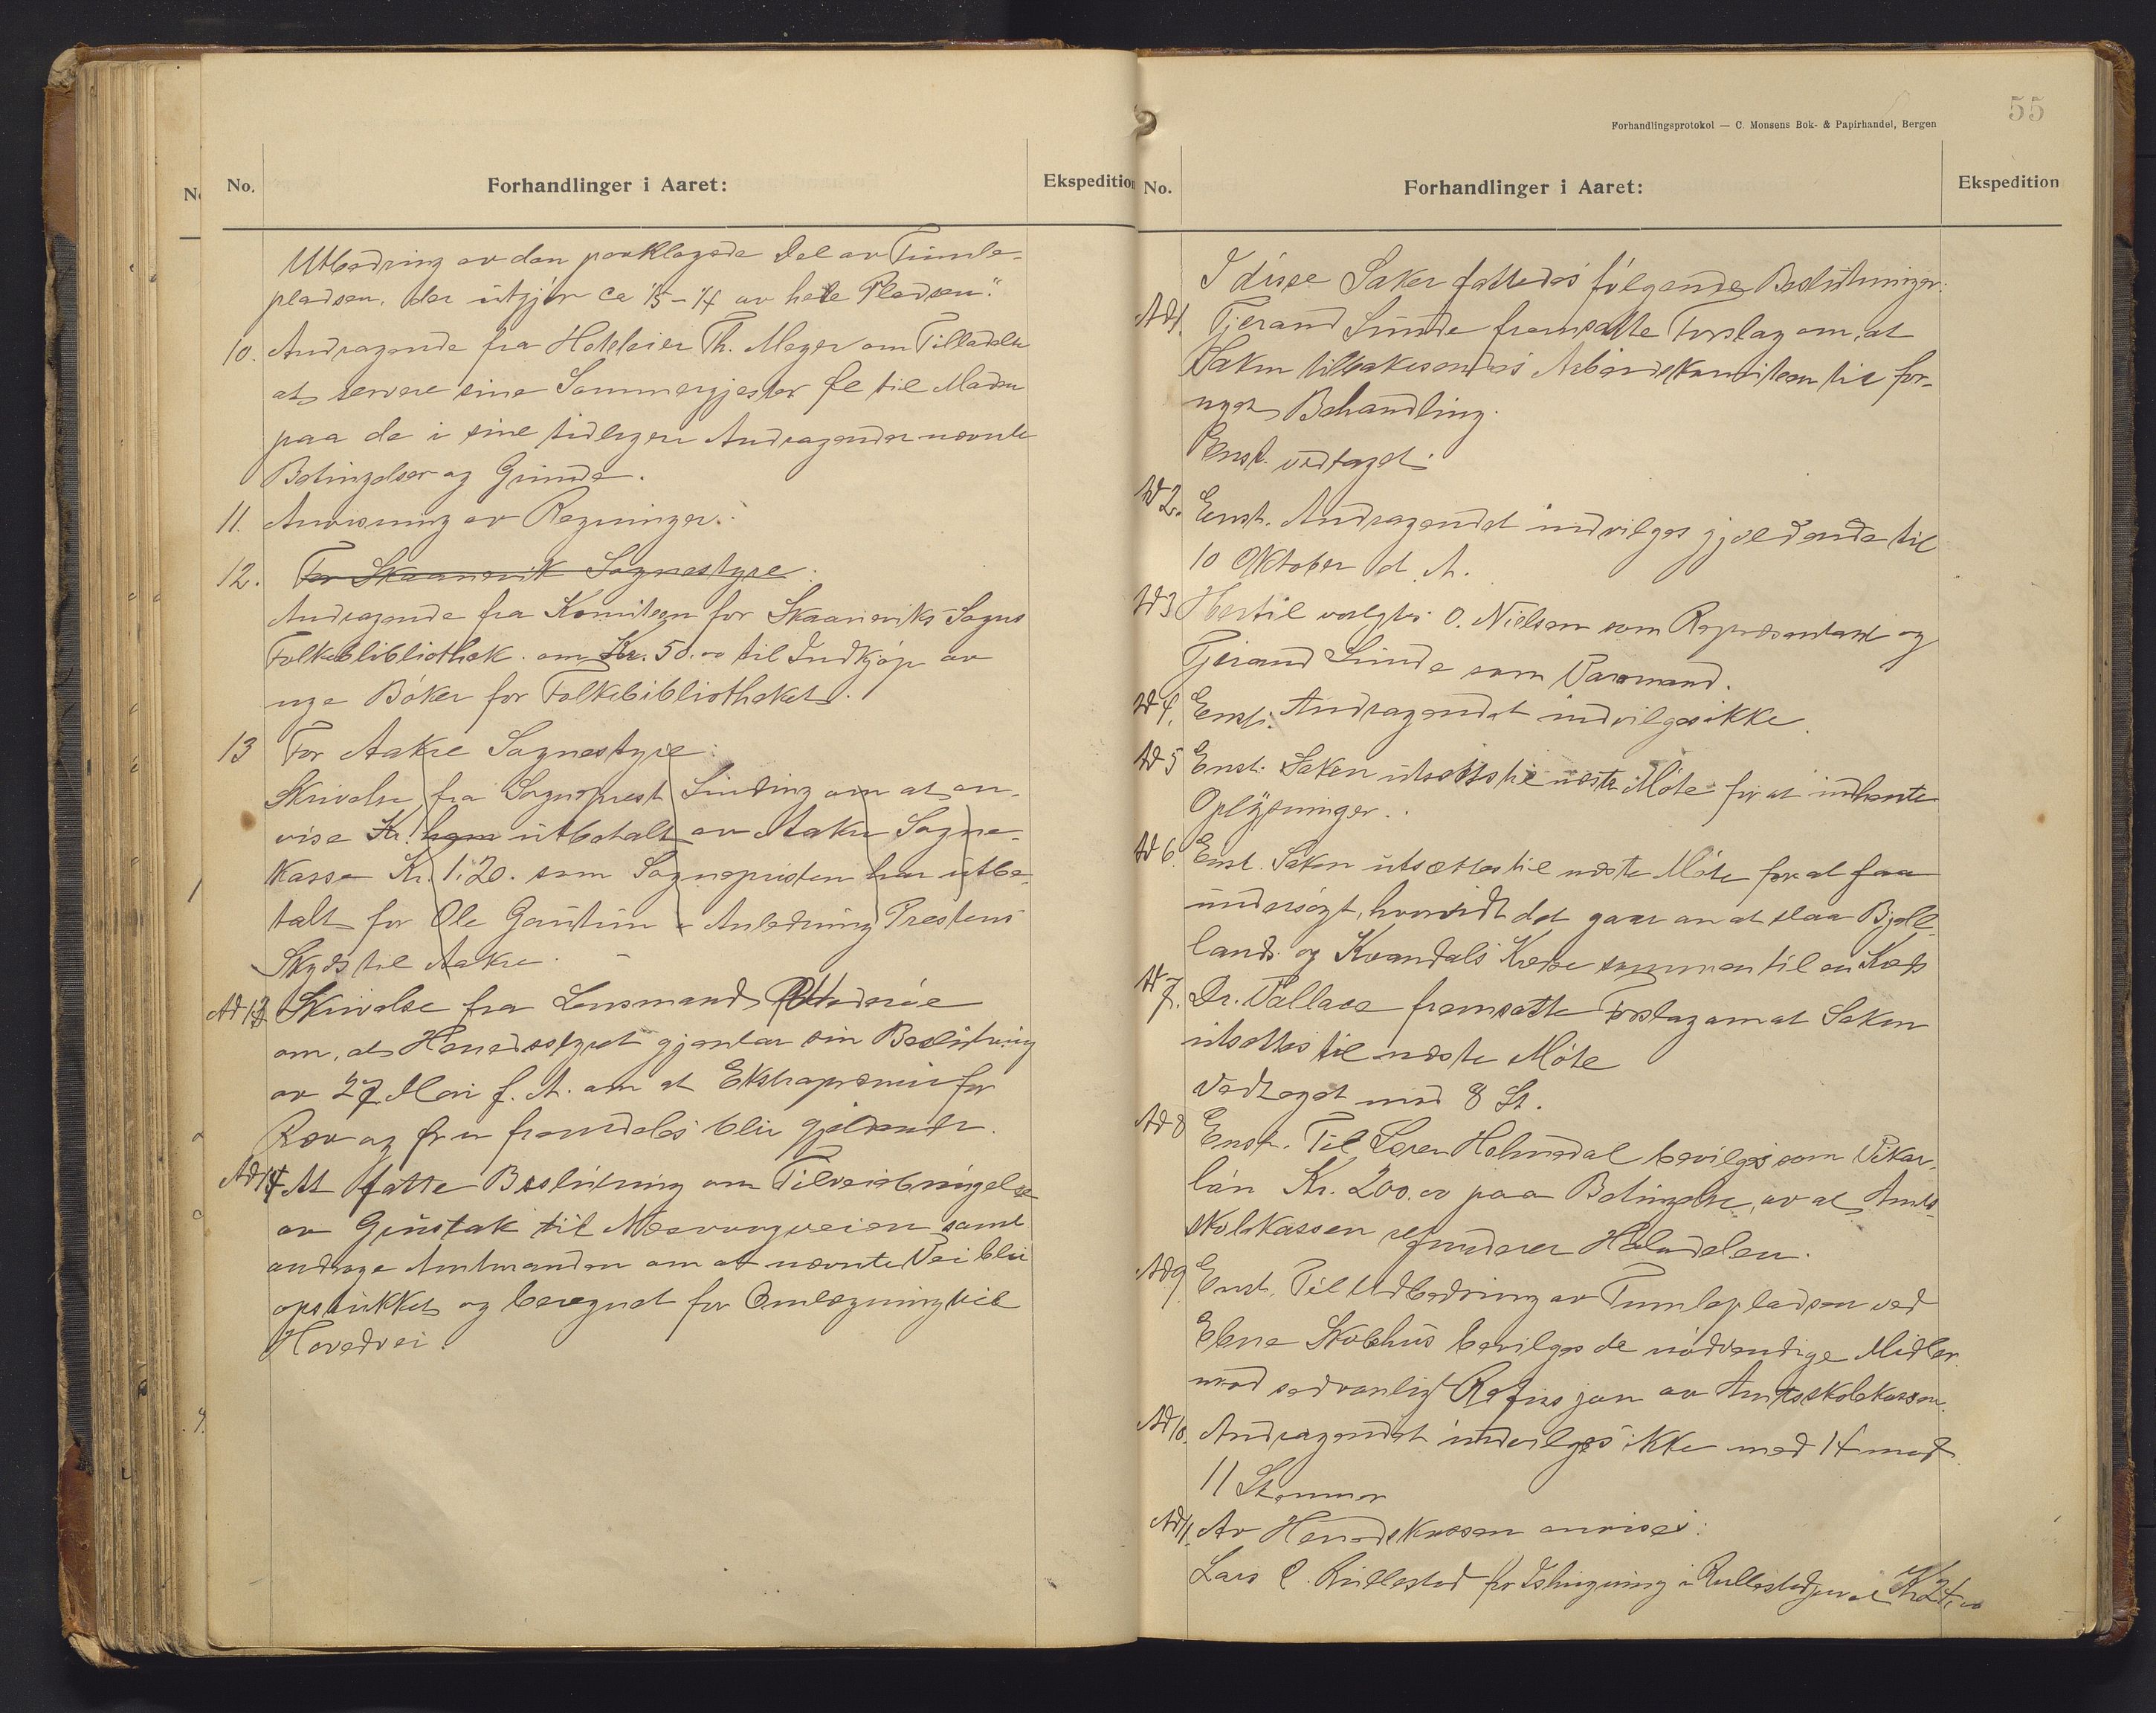 No.
Forhandlinger i Aaret:
Ekspedition
Utbedring av den paaklagede Del av Tumle-
pladsen, der utgjør ca 1/5 - 1/4 av hele Pladsen."
10. Andragende fra Hoteleier Th. Meyer om Tilladelse
at servere sine Sommergjester Øl til Maden
paa de i sine tidligere Andragender nævnte
Betingelser og Grunde.
11. Anvisning av Regninger.
12. For Skaanevik Sognestyre:
Andragende fra Komiteen for Skaaneviks Sogns
Folkebibliothek om Kr. 50.00 til Indkjøp av
nye Bøker for Folkebibliotheket.
13 For Aakre Sognestyre:
Skrivelse fra Sogneprest Sinding om at an-
vise Kr. ham utbetalt av Aakre Sogne-
kasse Kr. 1.20. som Sognepresten har utbe-
talt for Ole i Anledning Prestens
Skyds til Aakre.
Ad 13 Skrivelse fra Lensmand
om, at Herredsstyret gjentar sin Beslutning
av 27 Mai f. A. om at Ekstrapræmie for
Ræv og Ørn fremdeles blir gjældende.
Ad 14 At fatte Beslutning om Tilveiebringelse
av Grustak til Næsvaagveien samt
andrage Amtmanden om at nævnte Vei blir
opstukket og beregnet for Omlægning til
Hovedvei.
55
Forhandlingsprotokol — C. Monsens Bok- & Papirhandel, Bergen
No.
Forhandlinger i Aaret:
Ekspedition
I disse Saker fattedes følgende Beslutninger:
Ad 1. Tjerand Sunde fremsatte Forslag om, at
Saken tilbakesendes Arbeidskomiteen til for-
nyet Behandling.
Enst. vedtaget.
Ad 2. Enst. Andragendet indvilges gjældende til
10 Oktober d. A.
Ad 3 Hertil valgtes O. Nielsen som Repræsentant og
Tjerand Sunde som Varamand.
Ad 4. Enst. Andragendet indvilges ikke.
Ad 5 Enst. Saken utsættes til næste Møte for at indhente
Oplysninger.
Ad 6. Enst. Saken utsættes til næste Møte for at faa
undersøgt, hvorvidt det gaar an at slaa Bjell-
lands og Kvandals Kredse sammen til en Kreds
Ad 7. Dr. Wallace fremsatte Forslag om at Saken
utsættes til næste Møte
Vedtaget med 8 St.
Ad 8 Enst. Til Lærer Holmedal bevilges som Vikar-
løn Kr. 200.00 paa Betingelse, av at Amts-
skolekassen refunderer Halvdelen.
Ad 9 Enst. Til Utbedring av Tumlepladsen ved
Ebne Skolehus bevilges de nødvendige Midler
mod sedvanlig Refusjon av Amtsskolekassen.
Ad 10. Andragendet indvilges ikke med 14 mod
11 Stemmer
Ad 11. Av Herredskassen anvises:
Lars O. Rullestad for Ishugning i Rullestadjuvet Kr. 24.00